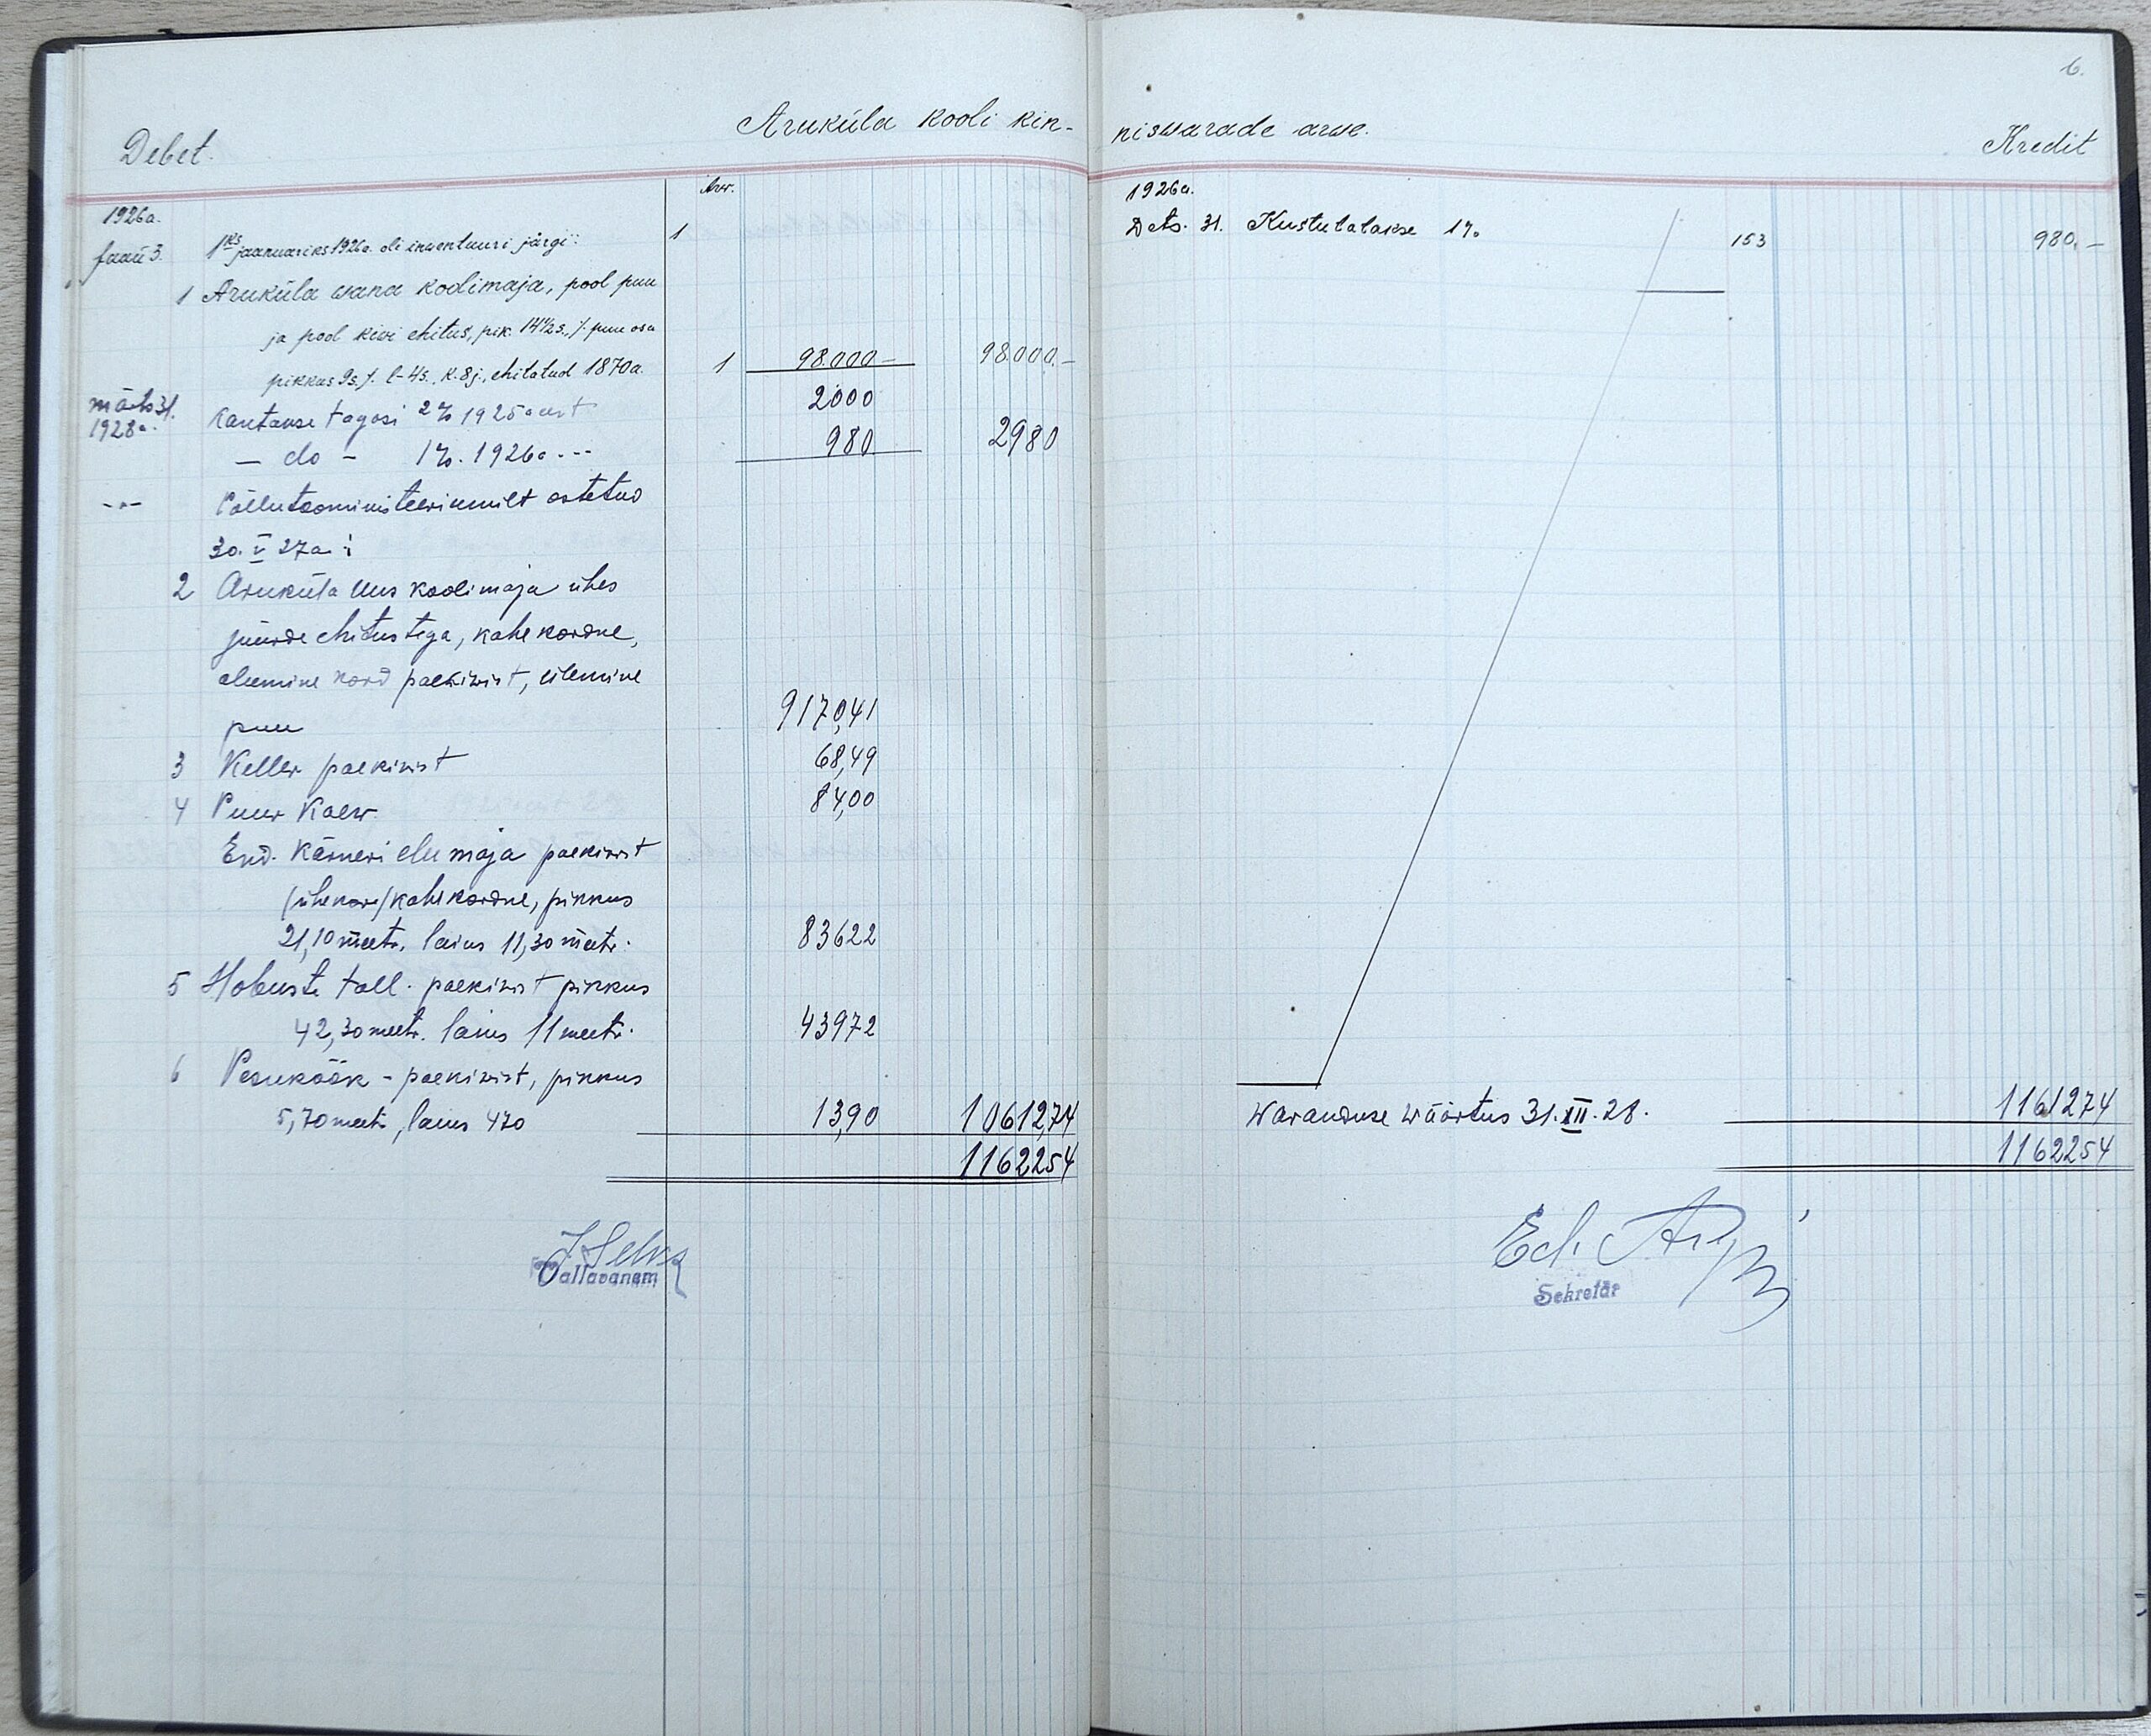 6.
Aruküla kooli kin-niswarade arwe.
Debet.
Kredit
Arv.
1926a.
Jaan 3. 1ks jaanuariks 1926a. oli inwentuuri järgi: 1
1 Aruküla wana koolimaja, pool puu
ja pool kivi ehitus, pik. 14 1/2 s., /. puu osa
pikkus 9s./. l-4s., k. 8j., ehitatud 1870a. 1 98.000- 98.000.-
märts 31. 1928a. Kantakse tagasi 2% 1925a eest 2000
- do - 1%. 1926a -"- 980 2980
-"- Põllutööministeeriumilt ostetud
30. V 27a :
2 Aruküla Uus koolimaja ühes
juurde ehitustega, kahekordne,
alumine kord paekivist, ülemine
puu 9170,41
3 Keller paekivist 68,49
4 Puur Kaew 84,00
End. Kärneri elu maja paekivist
(ühekor) kahekordne, pikkus
21,10 meetr. laius 11,30 meetr. 83622
5 Hobuste tall. paekivist pikkus
42,30 meetr. laius 11 meetr. 43972
6 Pesuköök - paekivist, pikkus
5,70 meetr, laius 470 13,90 10612,74
1162254
Vallavanem
1926a.
Dets. 31. Kustutatakse 1% 153 980.-
Waranduse wäärtus 31. XII. 28. 1161274
1162254
Sekretär